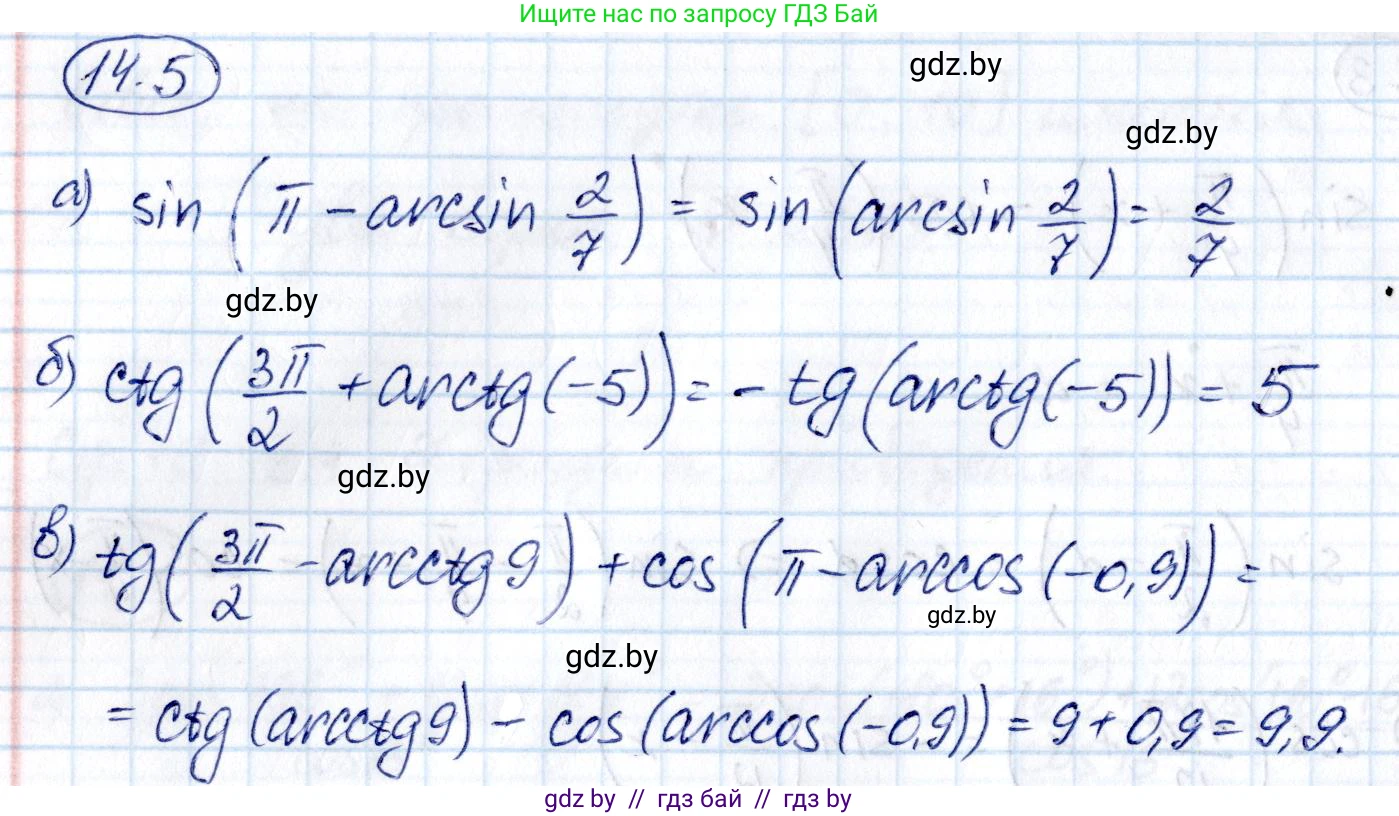 Ищите нас по запросу ГДЗ Бай
14.5
gdz.by
gdz.by
а) sin (π - arcsin 2/7) = sin (arcsin 2/7) = 2/7
gdz.by
б) ctg (3π/2 + arctg(-5)) = - tg(arctg(-5)) = 5
gdz.by
в) tg(3π/2 - arcctg 9) + cos (π - arccos (-0,9)) =
gdz.by
gdz.by
= ctg (arcctg 9) - cos (arccos (-0,9)) = 9 + 0,9 = 9,9.
gdz by // гдз бай // гдз by